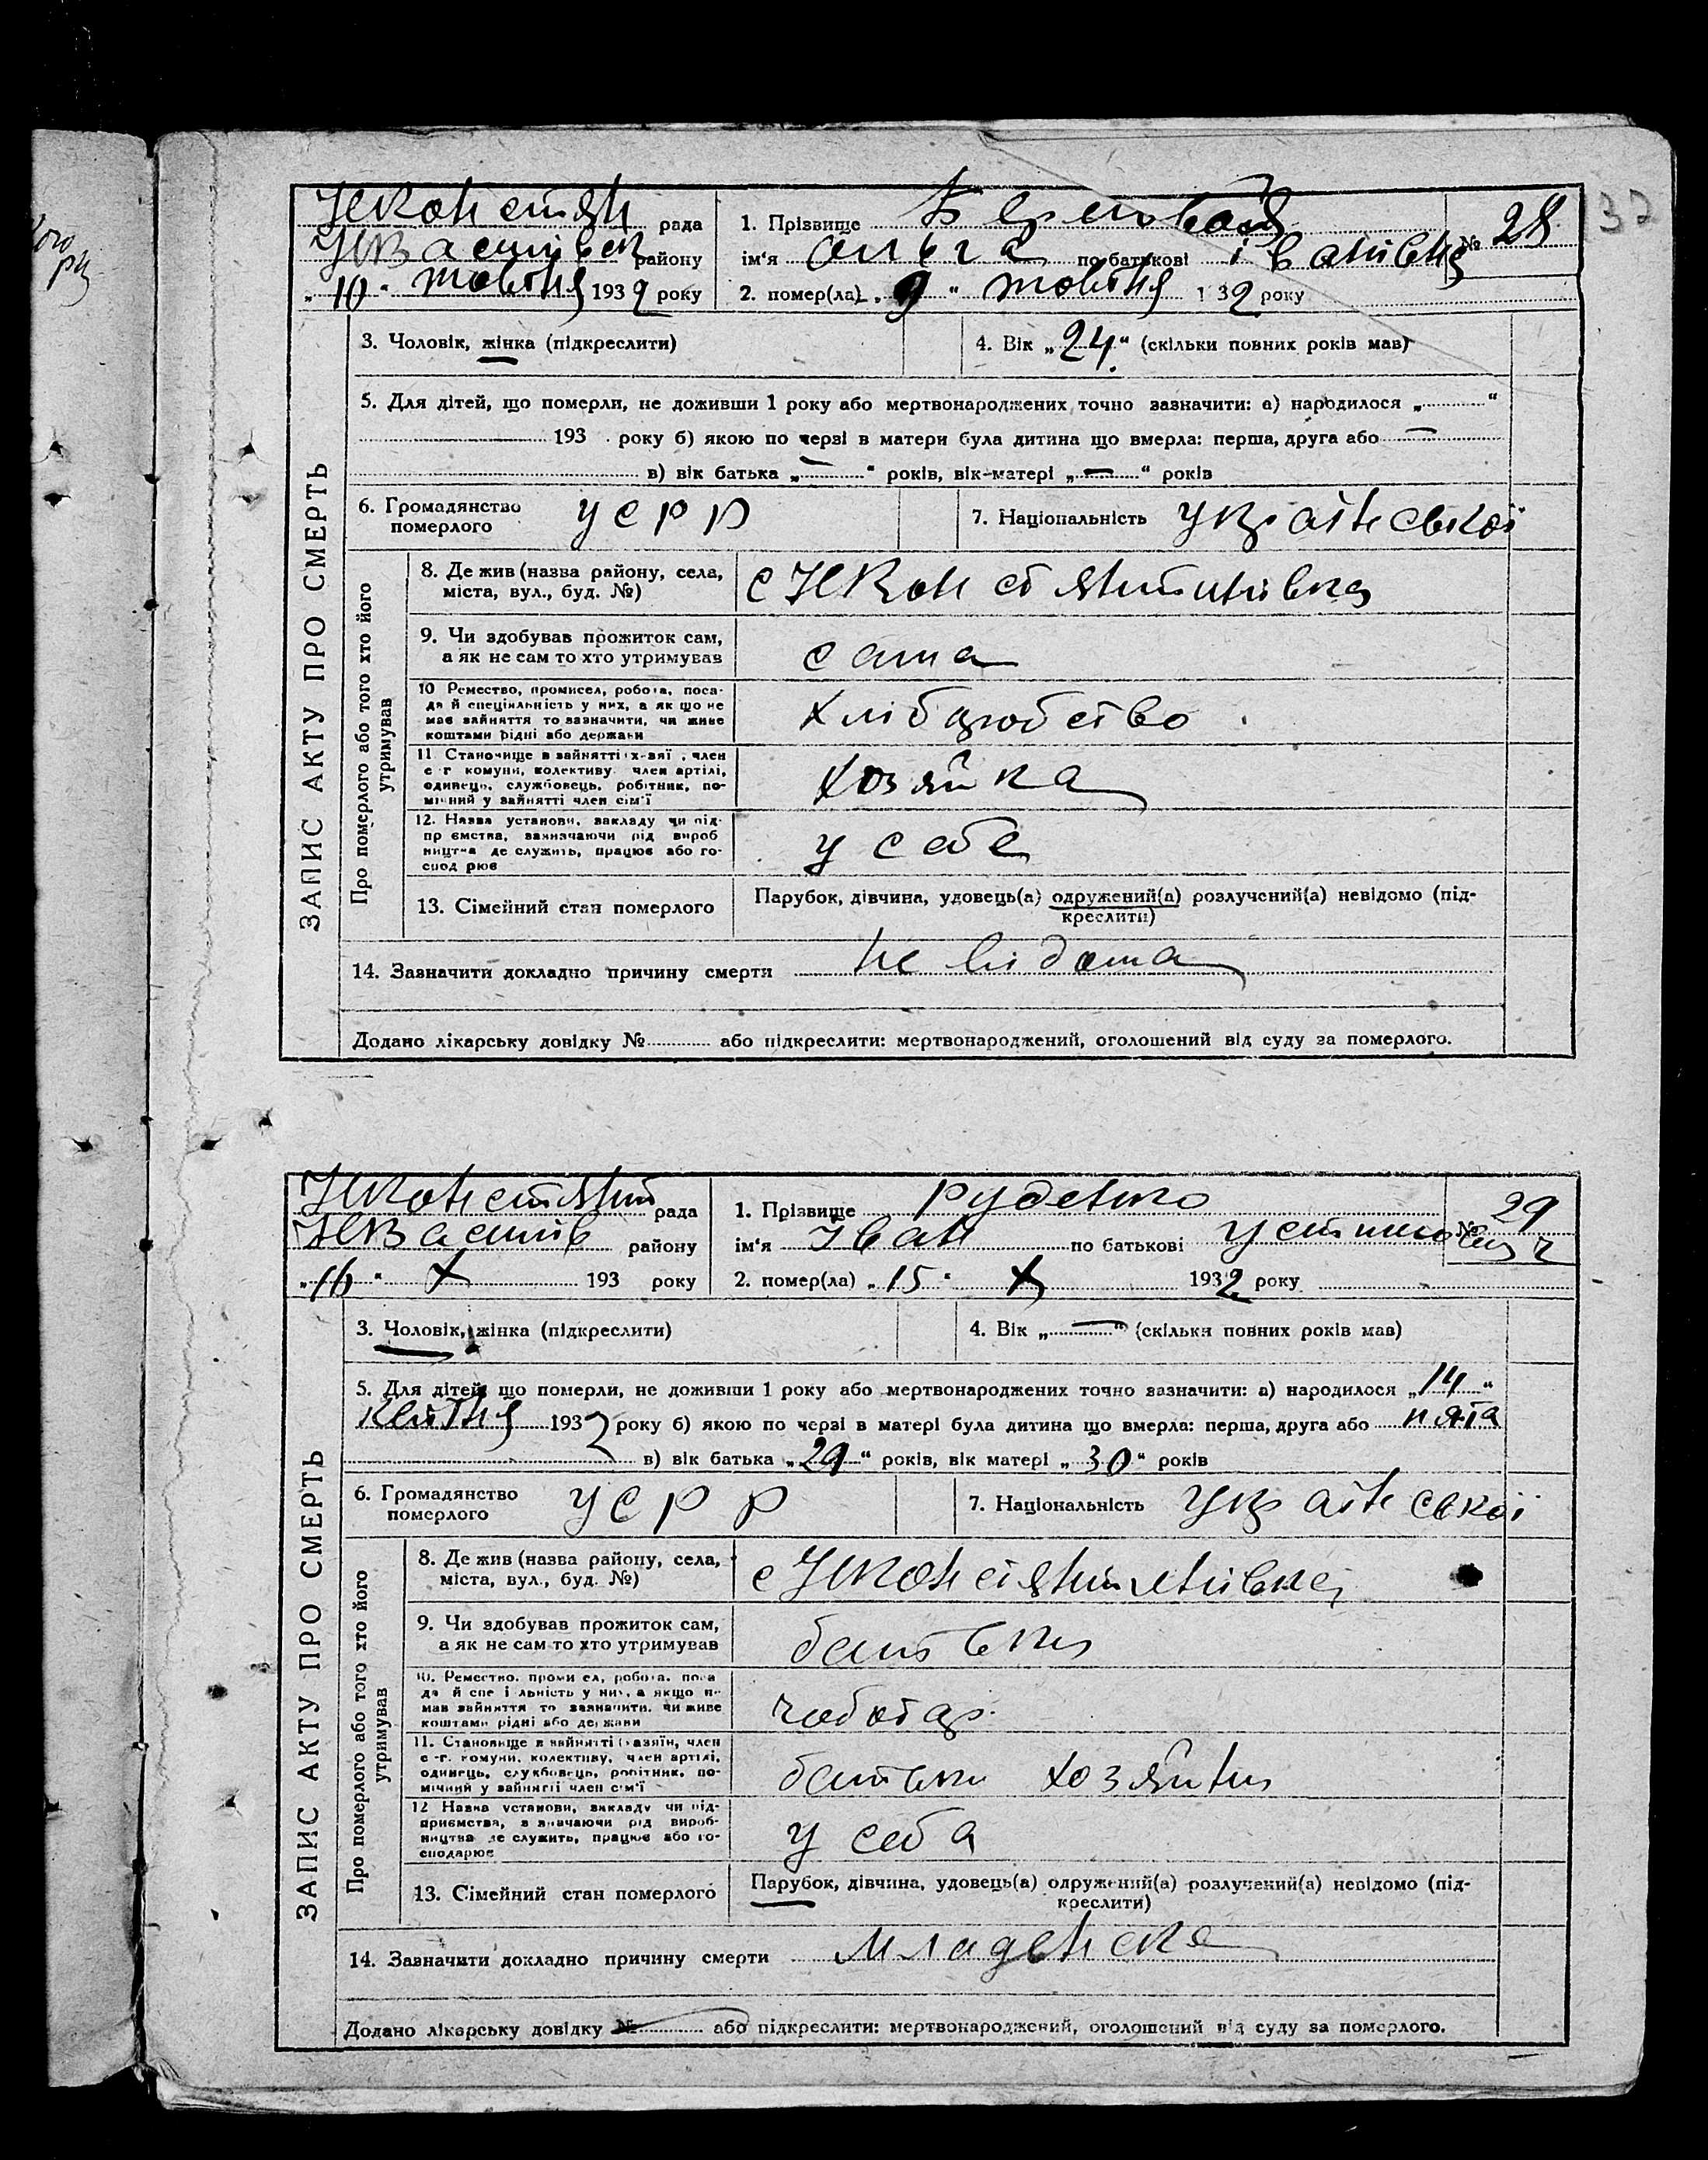 37
ЗАПИС АКТУ ПРО СМЕРТЬ
рада
району
"10" жовтня 1932 року
1. Прізвище
№ 28
ім'я Ольга по батькові Іванівна
2. помер(ла) "9" жовтня 1932 року
3. Чоловік, жінка (підкреслити)
4. Вік "24" (скільки повних років мав)
5. Для дітей, що померли, не доживши 1 року або мертвонароджених точно зазначити: а) народилося "—"
193 року б) якою по черзі в матери була дитина що вмерла: перша, друга або —
в) вік батька "—" років, вік-матері "—" років
6. Громадянство
померлого
УСРР
7. Національність
Про померлого або того хто його
утримував
8. Де жив (назва району, села,
міста, вул., буд. №)
9. Чи здобував прожиток сам,
а як не сам то хто утримував
сама
10 Ремество, промисел, робота, поса-
да й спеціяльність у них, а як що не
має зайняття то зазначити, чи живе
коштами рідні або держави
хліборобство
11. Становище в зайнятті х-вяї, член
с г комуни, колективу член артілі,
одинець, службовець, робітник, по-
мічний у зайнятті член сім'ї
хозяйка
12. Назва установи, закладу чи під-
пр ємства, зазначаючи рід вироб
ництва де служить, працює або го-
спод рює
у себе
13. Сімейний стан померлого
Парубок, дівчина, удовець(а) одружений(а) розлучений(а) невідомо (під-
креслити)
14. Зазначити докладно причину смерти не відома
Додано лікарську довідку № або підкреслити: мертвонароджений, оголошений від суду за померлого.
ЗАПИС АКТУ ПРО СМЕРТЬ
рада
району
"16" X 193 року
1. Прізвище Руденко
№ 29
ім'я Іван по батькові Устимович
2. помер(ла) "15" X 1932 року
3. Чоловік, жінка (підкреслити)
4. Вік "—" (скільки повних років мав)
5. Для дітей що померли, не доживши 1 року або мертвонароджених точно зазначити: а) народилося "14"
квітня 1932 року б) якою по черзі в матері була дитина що вмерла: перша, друга або пята
в) вік батька "29" років, вік матері "30" років
6. Громадянство
померлого
УСРР
7. Національність
Про померлого або того хто його
утримував
8. Де жив (назва району, села,
міста, вул., буд. №)
9. Чи здобував прожиток сам,
а як не сам то хто утримував
батьки
10. Ремество, проми ел, робота, поса
да й спе і льність у них, а якщо не
мав зайняття то зазначити, чи живе
коштами рідні або держави
чоботар
11. Становище в зайнятті хазяїн, член
с -г. комуни, колективу, член артілі,
одинець, службовець, робітник, по-
мічний у зайнятті член сім'ї
батьки хозяйни
12 Назва установи, закладу чи під-
приємства, з значаючи рід вироб-
ництва де служить, працює або го-
сподарює
у себа
13. Сімейний стан померлого
Парубок, дівчина, удовець(а) одружений(а) розлучений(а) невідомо (під-
креслити)
14. Зазначити докладно причину смерти младенска
Додано лікарську довідку № або підкреслити: мертвонароджений, оголошений від суду за померлого.